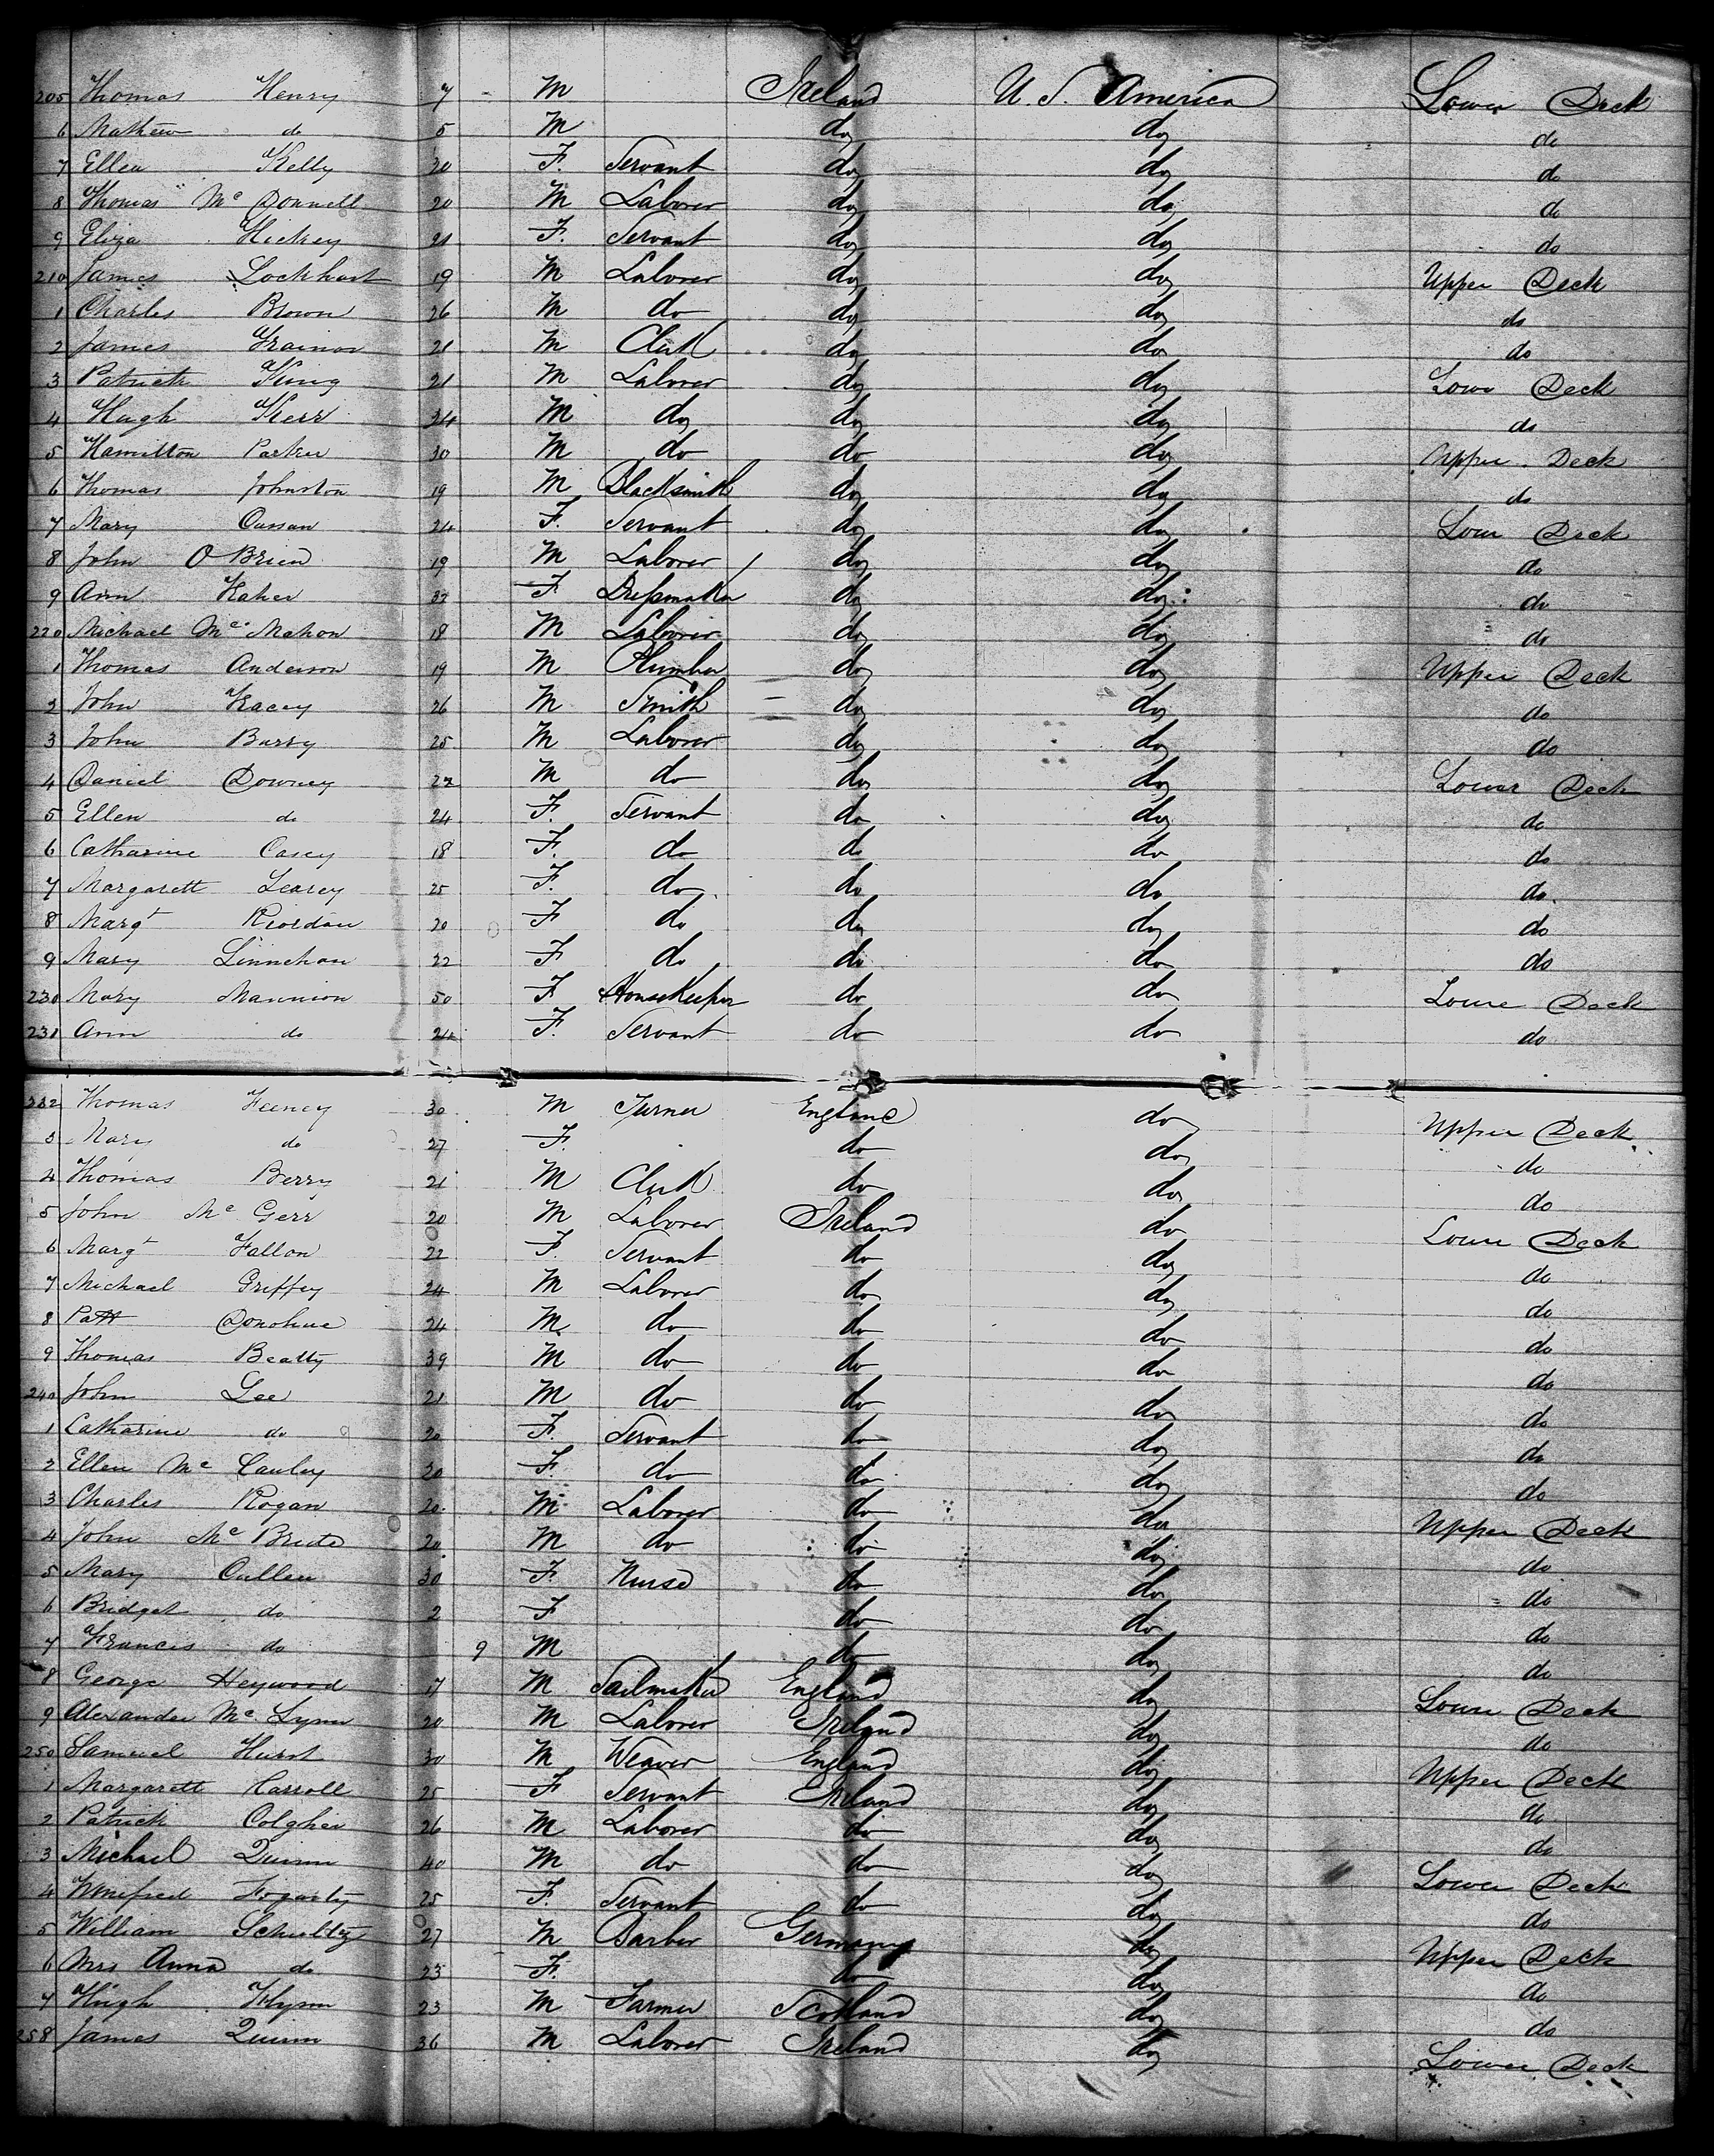 205 Thomas Henry 7 M Ireland U. S. America Lower Deck
6 Mathew do 5 M do do do
7 Ellen Kelly 20 F. Servant do do do
8 Thomas Mc Donnell 20 M Laborer do do do
9 Eliza Hickey 21 F. Servant do do do
210 James Lockhart 19 M Laborer do do Upper Deck
1 Charles Brown 26 M do do do do
2 James Grainor 21 M Clerk do do do
3 Patrick King 21 M Laborer do do Lower Deck
4 Hugh Kerr 34 M do do do do
5 Hamilton Parker 30 M do do do Upper Deck
6 Thomas Johnston 19 M Blacksmith do do do
7 Mary Cassan 24 F. Servant do do Lower Deck
8 John O Brien 19 M Laborer do do do
9 Ann Kaher 32 F Dressmaker do do do
220 Michael Mc Mahon 18 M Laborer do do do
1 Thomas Anderson 19 M Plumber do do Upper Deck
2 John Kacey 26 M Smith do do do
3 John Barry 25 M Laborer do do do
4 Daniel Downey 22 M do do do Lower Deck
5 Ellen do 24 F. Servant do do do
6 Catharine Casey 18 F. do do do do
7 Margarett Learey 25 F. do do do do
8 Margt Riordan 20 F do do do do
9 Mary Linnehan 22 F do do do do
230 Mary Mannion 50 F HouseKeeper do do Lower Deck
231 Ann do 24 F. Servant do do do
232 Thomas Feeney 30 M Turner England do Upper Deck
3 Mary do 27 F. do do do
4 Thomas Berry 21 M Clerk do do do
5 John Mc Gerr 20 M Laborer Ireland do Lower Deck
6 Margt Fallon 22 F. Servant do do do
7 Michael Griffey 24 M Laborer do do do
8 Patt Donohue 24 M do do do do
9 Thomas Beatty 39 M do do do do
240 John Lee 21 M do do do do
1 Catharine do 20 F. Servant do do do
2 Ellen Mc Cauley 20 F. do do do do
3 Charles Rogan 20 M Laborer do do Upper Deck
4 John Mc Bride 20 M do do do do
5 Mary Cullen 30 F. Nurse do do do
6 Bridget do 2 F do do do
7 Francis do 9 M do do do
8 George Heywood 17 M Sailmaker England do Lower Deck
9 Alexander Mc Lynn 20 M Laborer Ireland do do
250 Samuel Hurst 30 M Weaver England do Upper Deck
1 Margarett Carroll 25 F Servant Ireland do do
2 Patrick Colgher 26 M Laborer do do do
3 Michael Quinn 40 M do do do Lower Deck
4 Winefred Fogarty 25 F. Servant do do do
5 William Schultz 27 M Barber Germany do Upper Deck
6 Mrs Anna do 23 F. do do do
7 Hugh Flynn 23 M Farmer Scotland do do
258 James Quinn 36 M Laborer Ireland do Lower Deck